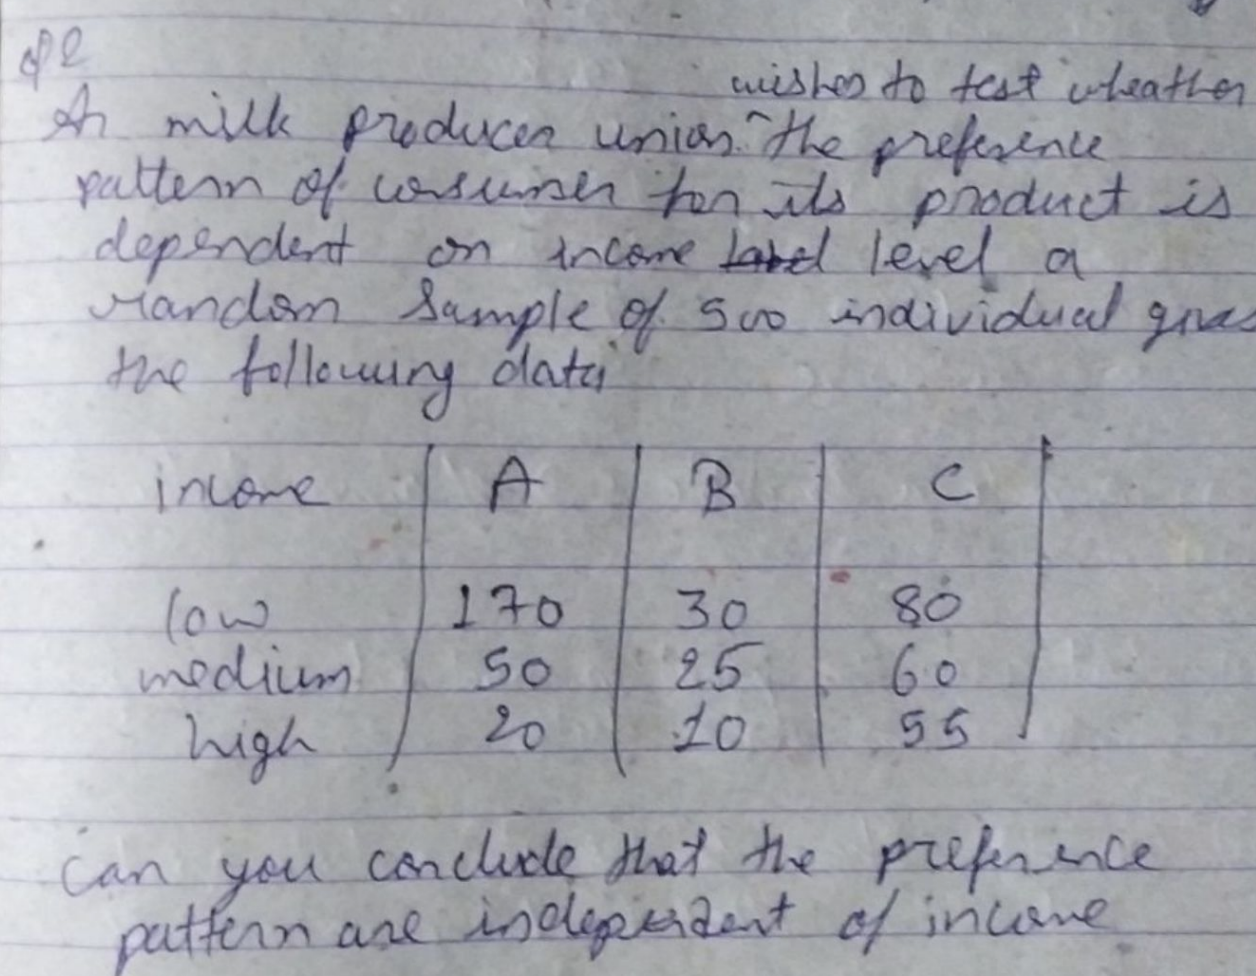 Q 2
wishes to test wheather
A milk producer union ^ the preference
pattern of consumer for its product is
dependent on income level a
random Sample of 500 individual gives
the following data
income A B C
low 170 30 80
medium 50 25 60
high 20 10 55
can you conclude that the preference
pattern are independent of income